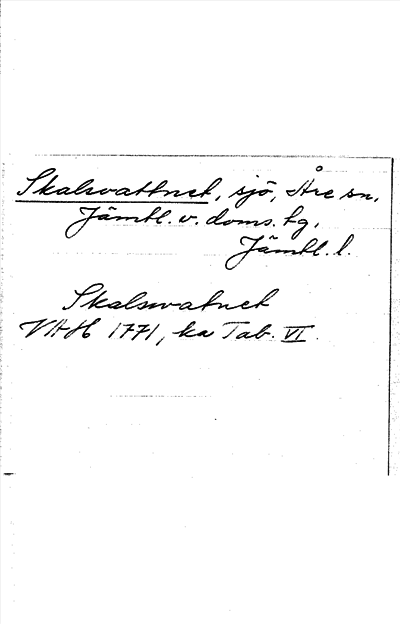 Skalsvattnet, sjö, Åre sn,
Jämtl. v. doms. tg,
Jämtl. l.
Skalswatnet
VAH 1771, ka Tab. VI.